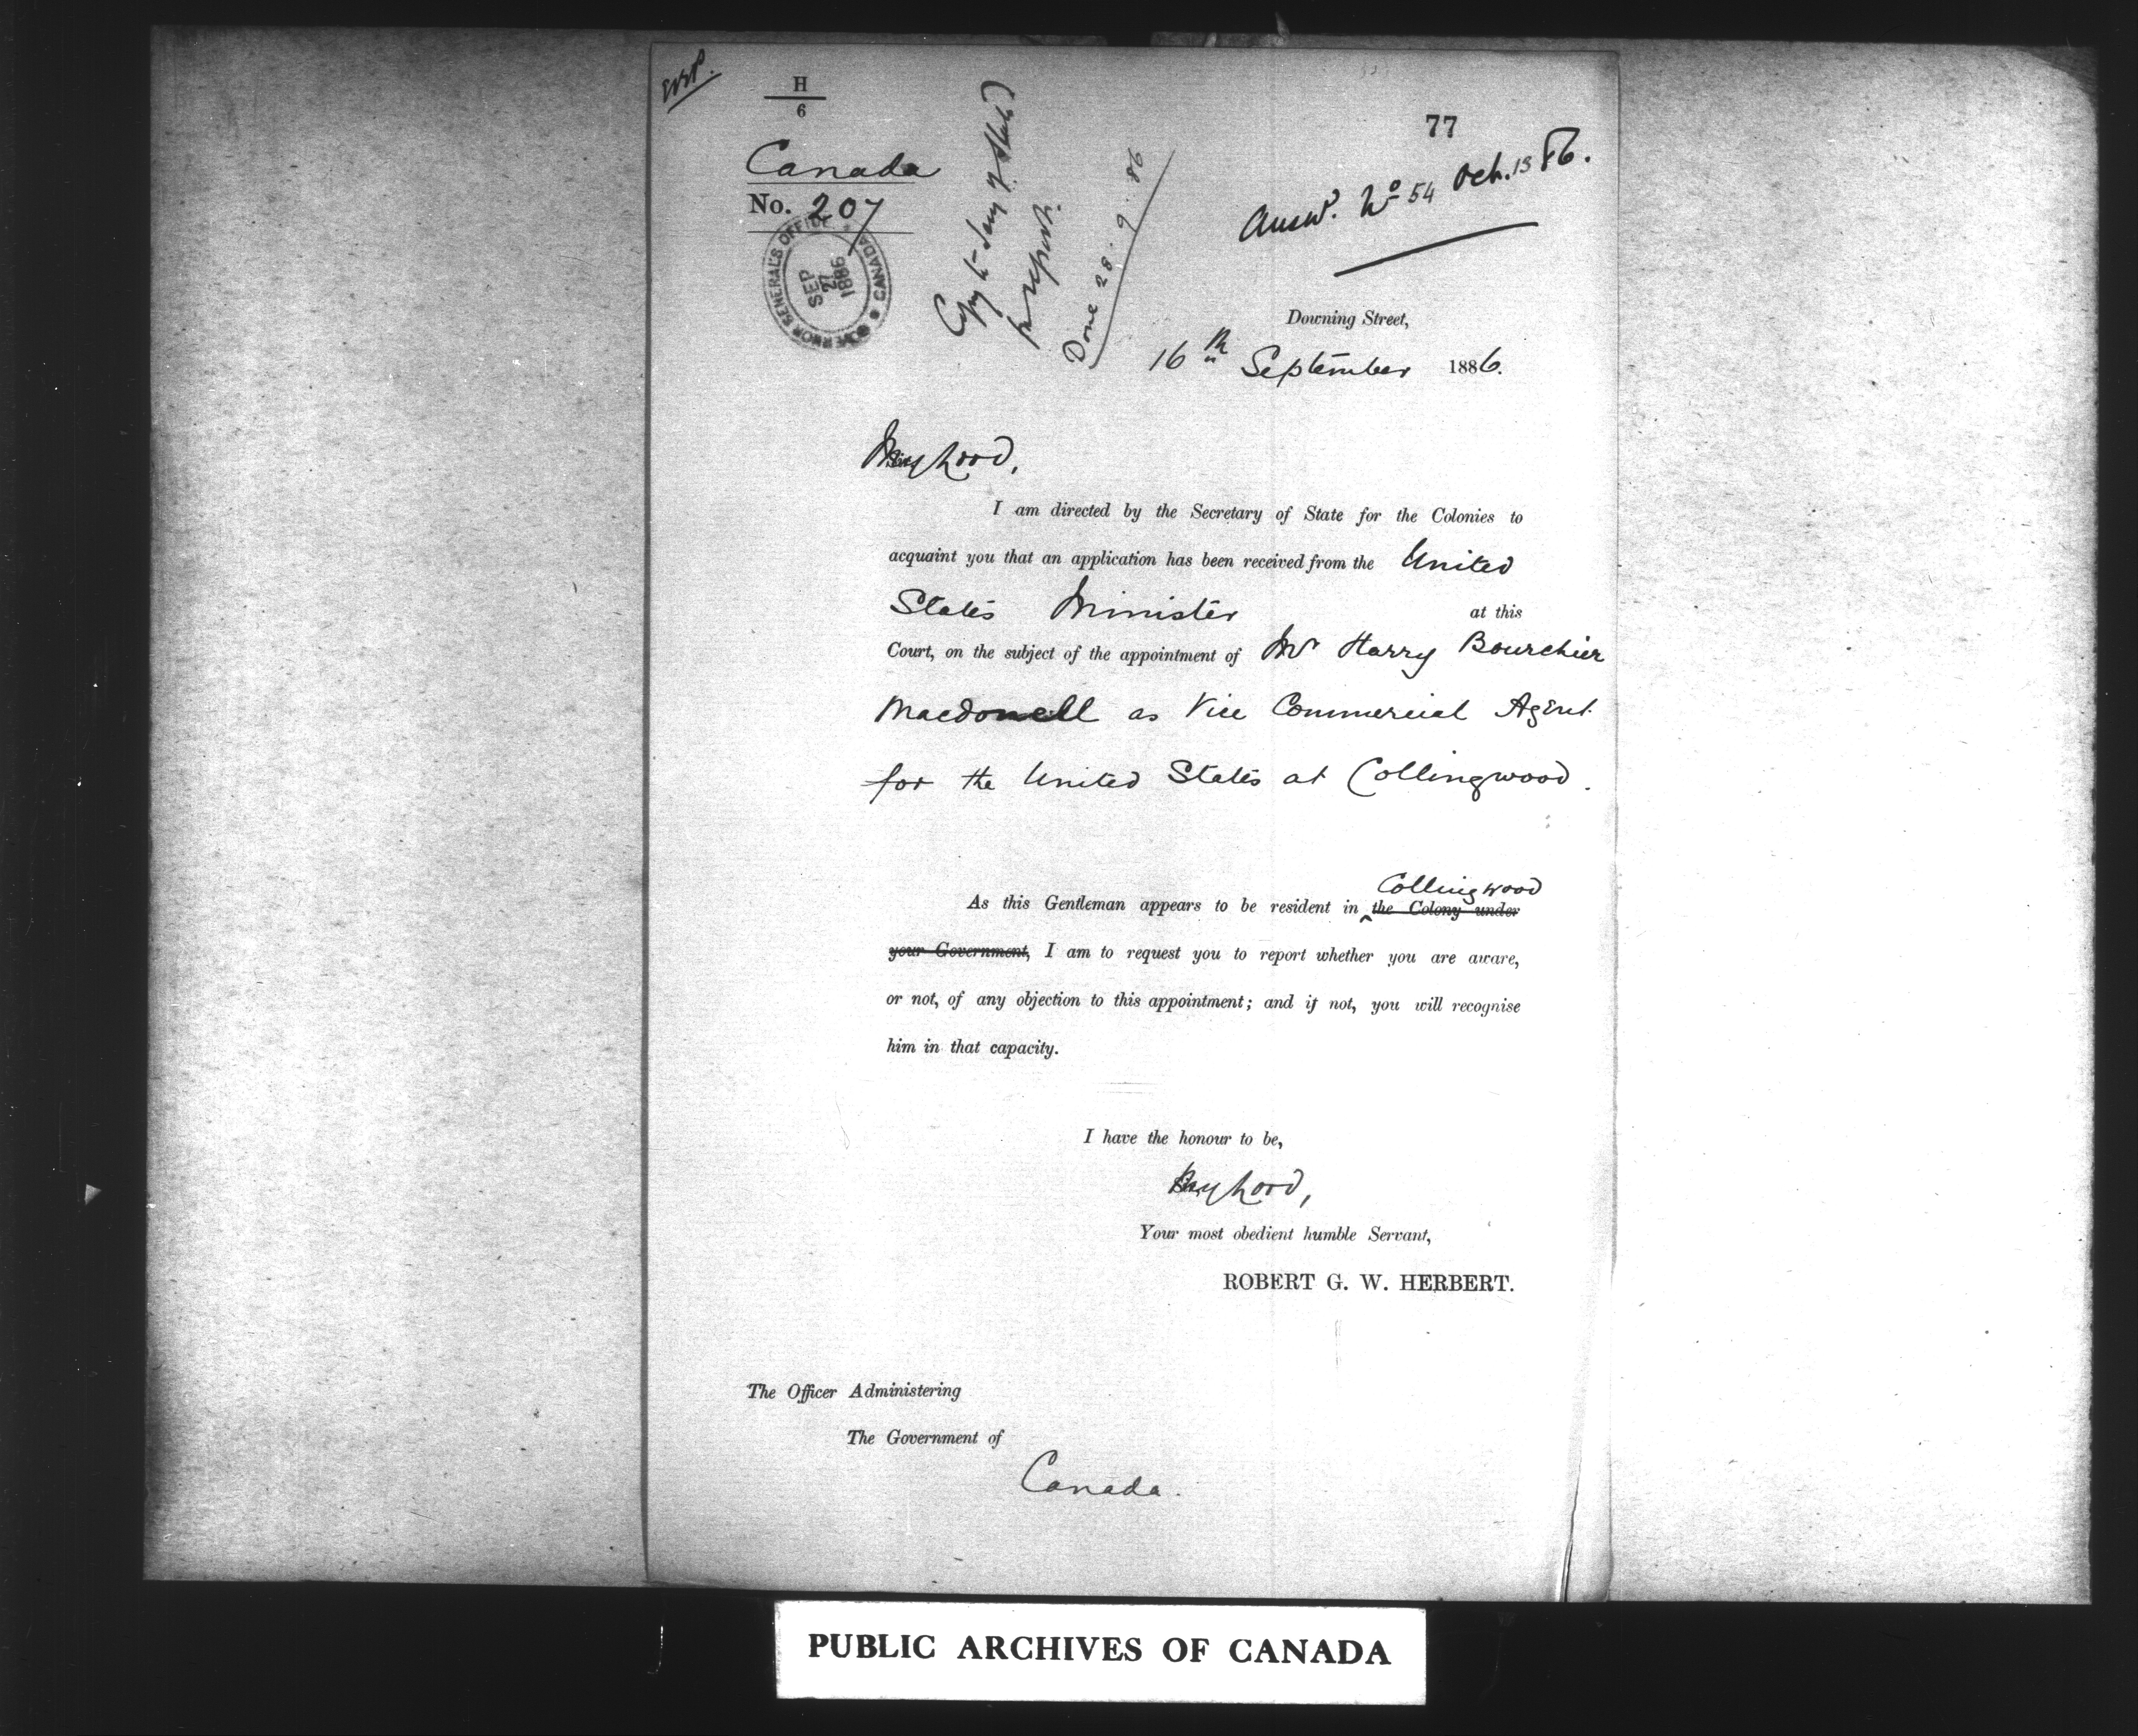 H
6
77
Canada
No. 207
GOVERNOR GENERAL'S OFFICE
CANADA
SEP
27
1886
Copy to Secy of State
for report.
Done 28.9.86
Answd. No 54 Oct. 15 86.
Downing Street,
16th September 1886.
My Lord,
I am directed by the Secretary of State for the Colonies to
acquaint you that an application has been received from the United
States Minister at this
Court, on the subject of the appointment of Mr Harry Bourchier
Macdonell as Vice Commercial Agent
for the United States at Collingwood.
Collingwood
As this Gentleman appears to be resident in the Colony under
your Government, I am to request you to report whether you are aware,
or not, of any objection to this appointment; and if not, you will recognise
him in that capacity.
I have the honour to be,
My Lord,
Your most obedient humble Servant,
ROBERT G. W. HERBERT.
The Officer Administering
The Government of
Canada.
PUBLIC ARCHIVES OF CANADA